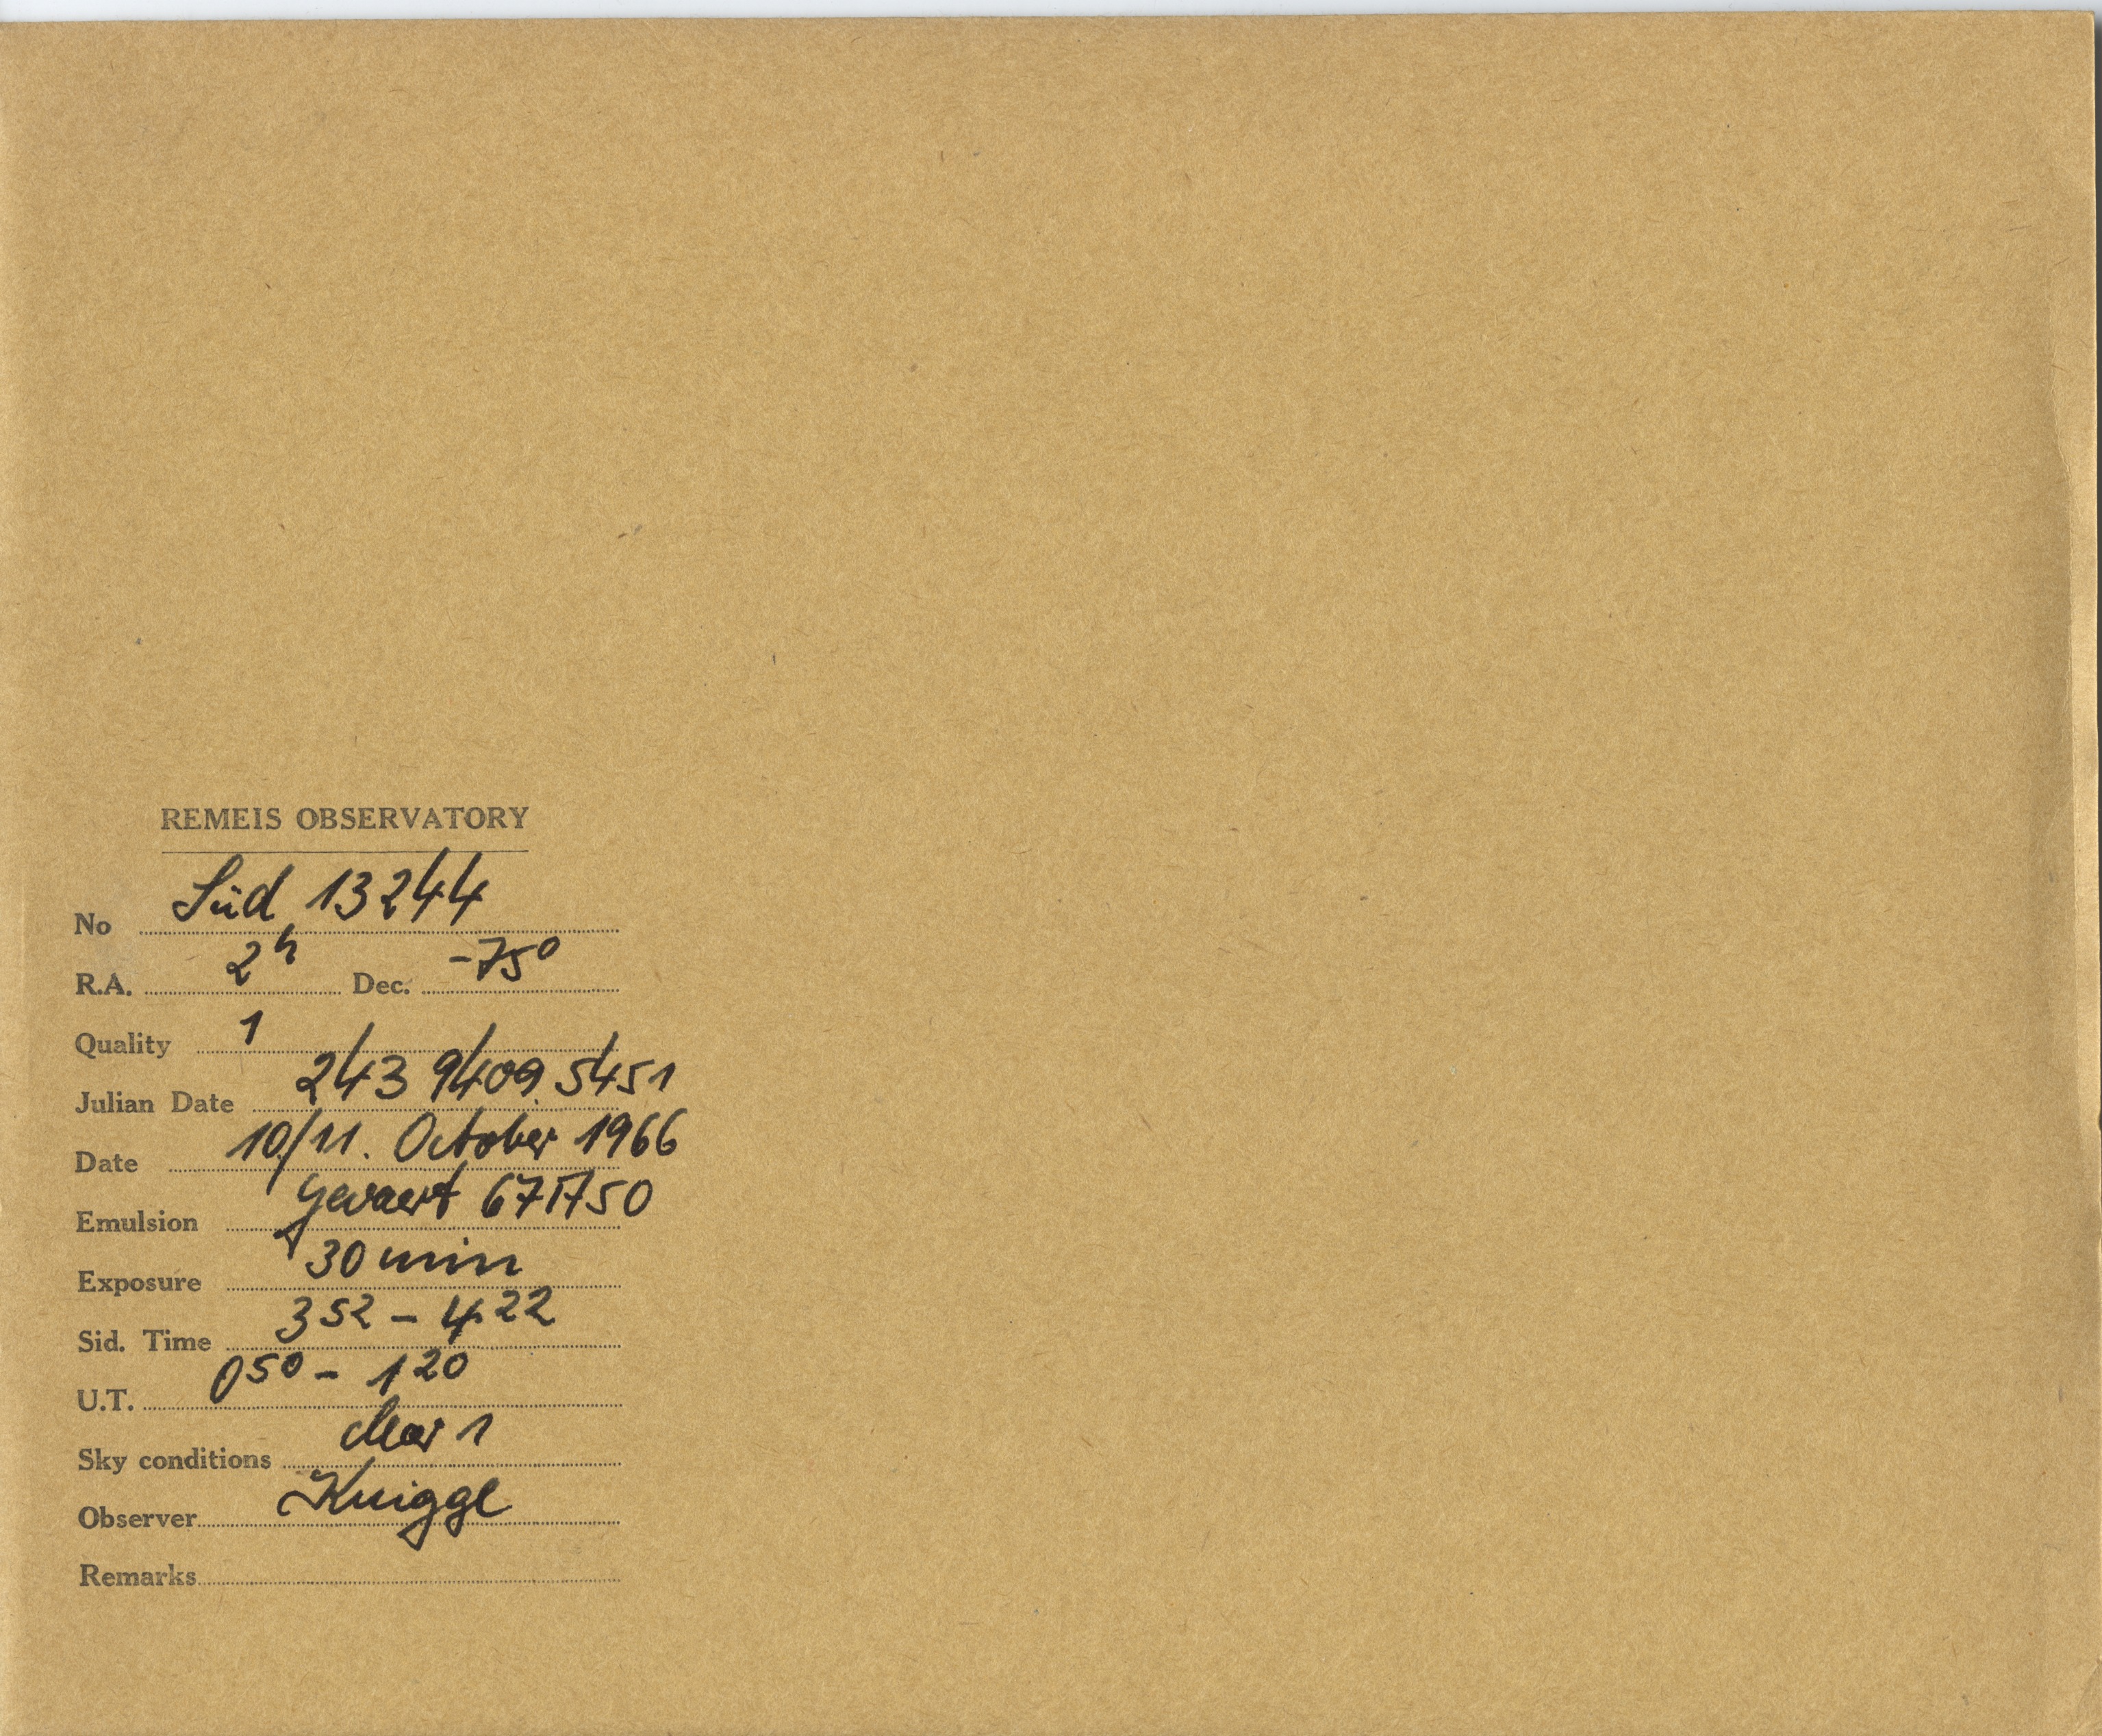 REMEIS OBSERVATORY
No Süd 13244
R.A. 2h Dec. -75°
Quality 1
Julian Date 243 9409.5451
Date 10/11. October 1966
Emulsion Gevaert 67A50
Exposure 30 min
Sid. Time 3 52 - 4 22
U.T. 0 50 - 1 20
Sky conditions clear 1
Observer Knigge
Remarks